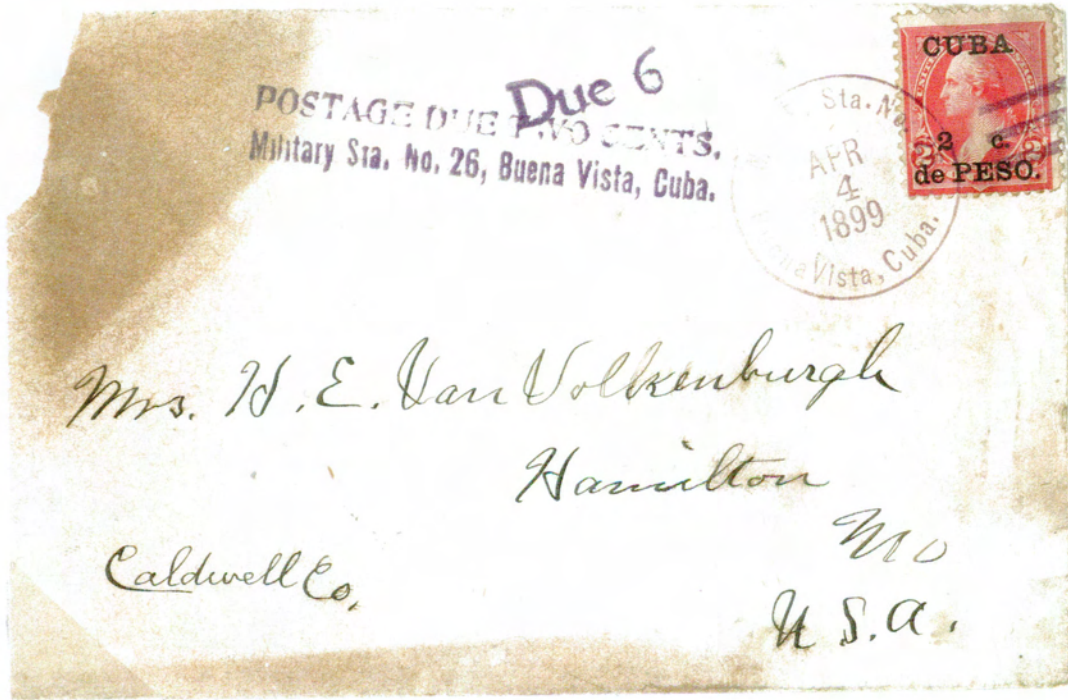 Due 6
POSTAGE DUE TWO CENTS.
Military Sta. No. 26, Buena Vista, Cuba.
Sta. No
APR
4
1899
Buena Vista, Cuba.
CUBA
2 c.
de PESO.
Mrs. H. E. Van Volkenburgh
Hamilton
Mo
U.S.A.
Caldwell Co.